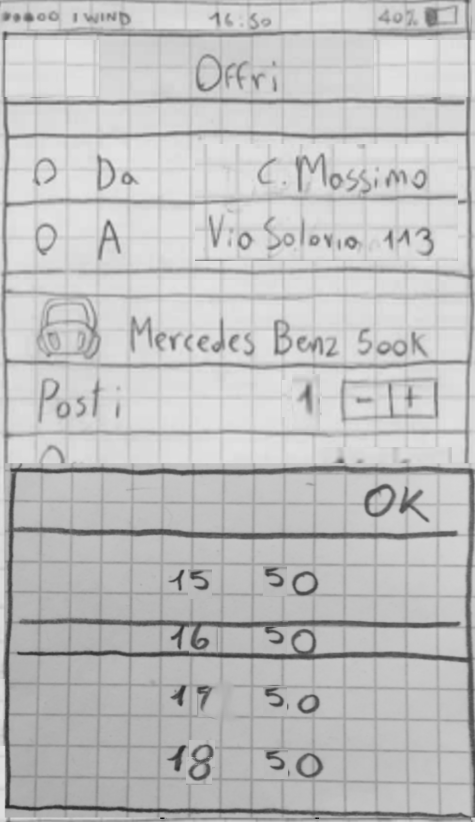 WIND 16:50 40%
Offri
Da C. Massimo
A Via Solaria 113
Mercedes Benz 500K
Posti 1 - +
OK
15 50
16 50
17 50
18 50